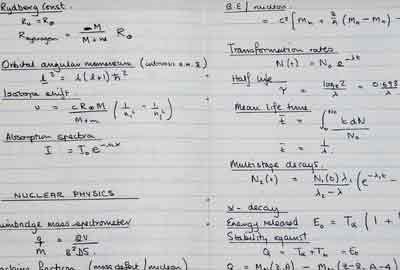 Rydberg Const.
R₀ = R∞
R_Hydrogen = M / (M + m) R∞
Orbital angular momentum
l² = l(l+1)ħ²
Isotope shift.
υ = cR∞M / (M+m) (1/n₁² − 1/n₂²)
Absorption spectra
I = I₀ e
NUCLEAR PHYSICS
Bainbridge mass spectrometer
q/M = 2V / B²
(mass defect / nucleon)
B.E / nucleon
= c² [Mₙ + (Mₙ − Mₙ) −
Transformation rates
N(t) = N₀ e^−λt
Half life
τ = log₂2 / λ = 0.693 / λ
Mean life time
t̄ = ∫ t dN / N₀
t̄ = 1/λ
Multistage decays.
N₂(t) = N₁(0) λ₁ / (λ₂ − λ) (e^−λ₁t −
α - decay
Energy released E₀ = Tα (1 +
Stability against
Q = Tα + T = E₀
Q = M (Z, A) − M (Z-2, A-4)